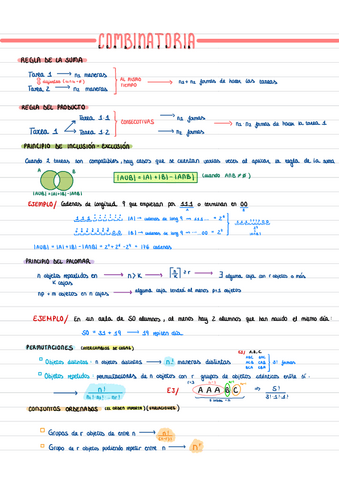 COMBINATORIA
REGLA DE LA SUMA
Tarea 1 → n₁ maneras
Tarea 2 → n₂ maneras
AL MISMO TIEMPO
n₁+n₂ formas de hacer las tareas
REGLA DEL PRODUCTO
Tarea 1
Tarea 1.1
Tarea 1.2
CONSECUTIVAS
n₁ formas
n₂ formas
n₁ n₂ formas de hacer la tarea 1
PRINCIPIO DE INCLUSIÓN-EXCLUSIÓN
Cuando 2 tareas son compatibles, hay casos que se cuentan varias veces al aplicar la regla de la suma
A B
|AUB| = |A|+|B|-|A∩B| (cuando A∩B ≠ ∅)
|AUB| = |A|+|B|-|A∩B|
EJEMPLO/ Cadenas de longitud 9 que empiezan por 111 o terminan en 00
|A| → cadenas de long 9 → 111... = 2⁶
|B| → cadenas de long 9 → ...00 = 2⁷
|AUB| = |A|+|B|-|A∩B| = 2⁶+2⁷-2⁴ = 176 cadenas
PRINCIPIO DEL PALOMAR
n objetos repartidos en K cajas → n > K →
∃ alguna caja con r objetos o más
np + m objetos en n cajas → alguna caja tendrá al menos p+1 objetos
EJEMPLO/ En un aula de 50 alumnos, al menos hay 2 alumnos que han nacido el mismo día:
50 = 31 + 19 → 19 repiten día
PERMUTACIONES (INTERCAMBIOS DE COSAS)
Objetos distintos: n objetos distintos → n! maneras distintas
EJ/ A, B, C
3! formas
Objetos repetidos: permutaciones de n objetos con r grupos de objetos idénticos entre sí:
n!
EJ/ A A A B C
5!
3!·1!·1!
CONJUNTOS ORDENADOS (EL ORDEN IMPORTA) (VARIACIONES)
Grupos de r objetos de entre n → n!
(n-r)!
Grupo de r objetos pudiendo repetir entre n → nʳ